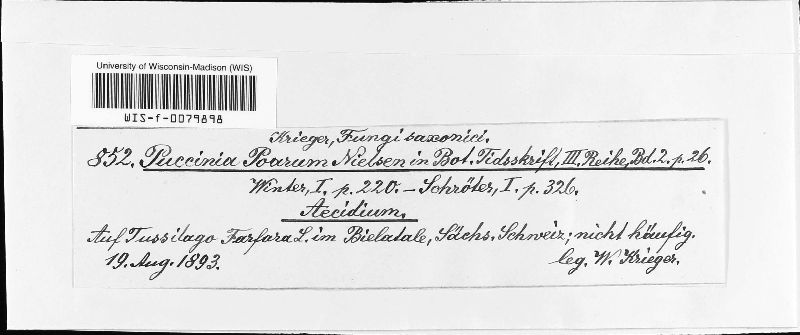 University of Wisconsin-Madison (WIS)
WIS-f-0079898
Krieger, Fungi saxonici.
852. Puccinia Poarum Nielsen in Bot. Tidsskrift, III. Reihe, Bd. 2. p. 26.
Winter, I. p. 220. – Schröter, I. p. 326.
Aecidium.
Auf Tussilago Farfara L. im Bielatale, Sächs. Schweiz; nicht häufig.
19. Aug. 1893. leg. W. Krieger.